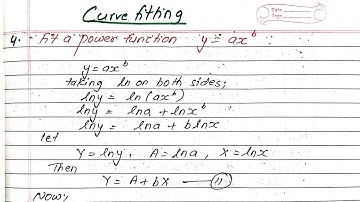 Curve fitting
Date
Page
4. fit a power function y = ax^b
y = ax^b
taking ln on both sides;
lny = ln(ax^b)
lny = lna + lnx^b
lny = lna + blnx
let
Y = lny, A = lna, X = lnx
Then
Y = A + bX — (ii)
Now;